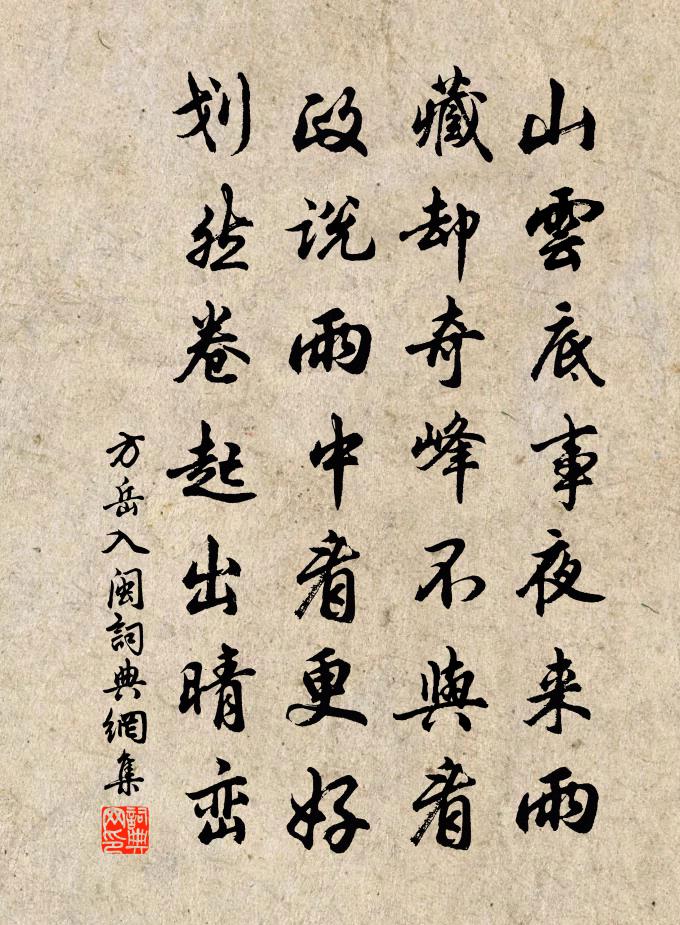 山雲底事夜来雨
藏却奇峰不與看
政说雨中看更好
划然卷起出晴峦
方岳入闽詞典網集
詞典網印